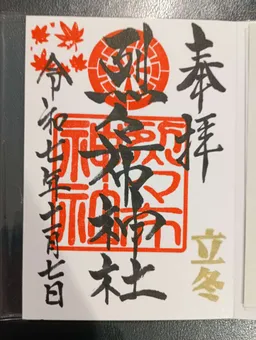 奉拝
立冬
烈々布神社
令和七年十一月七日